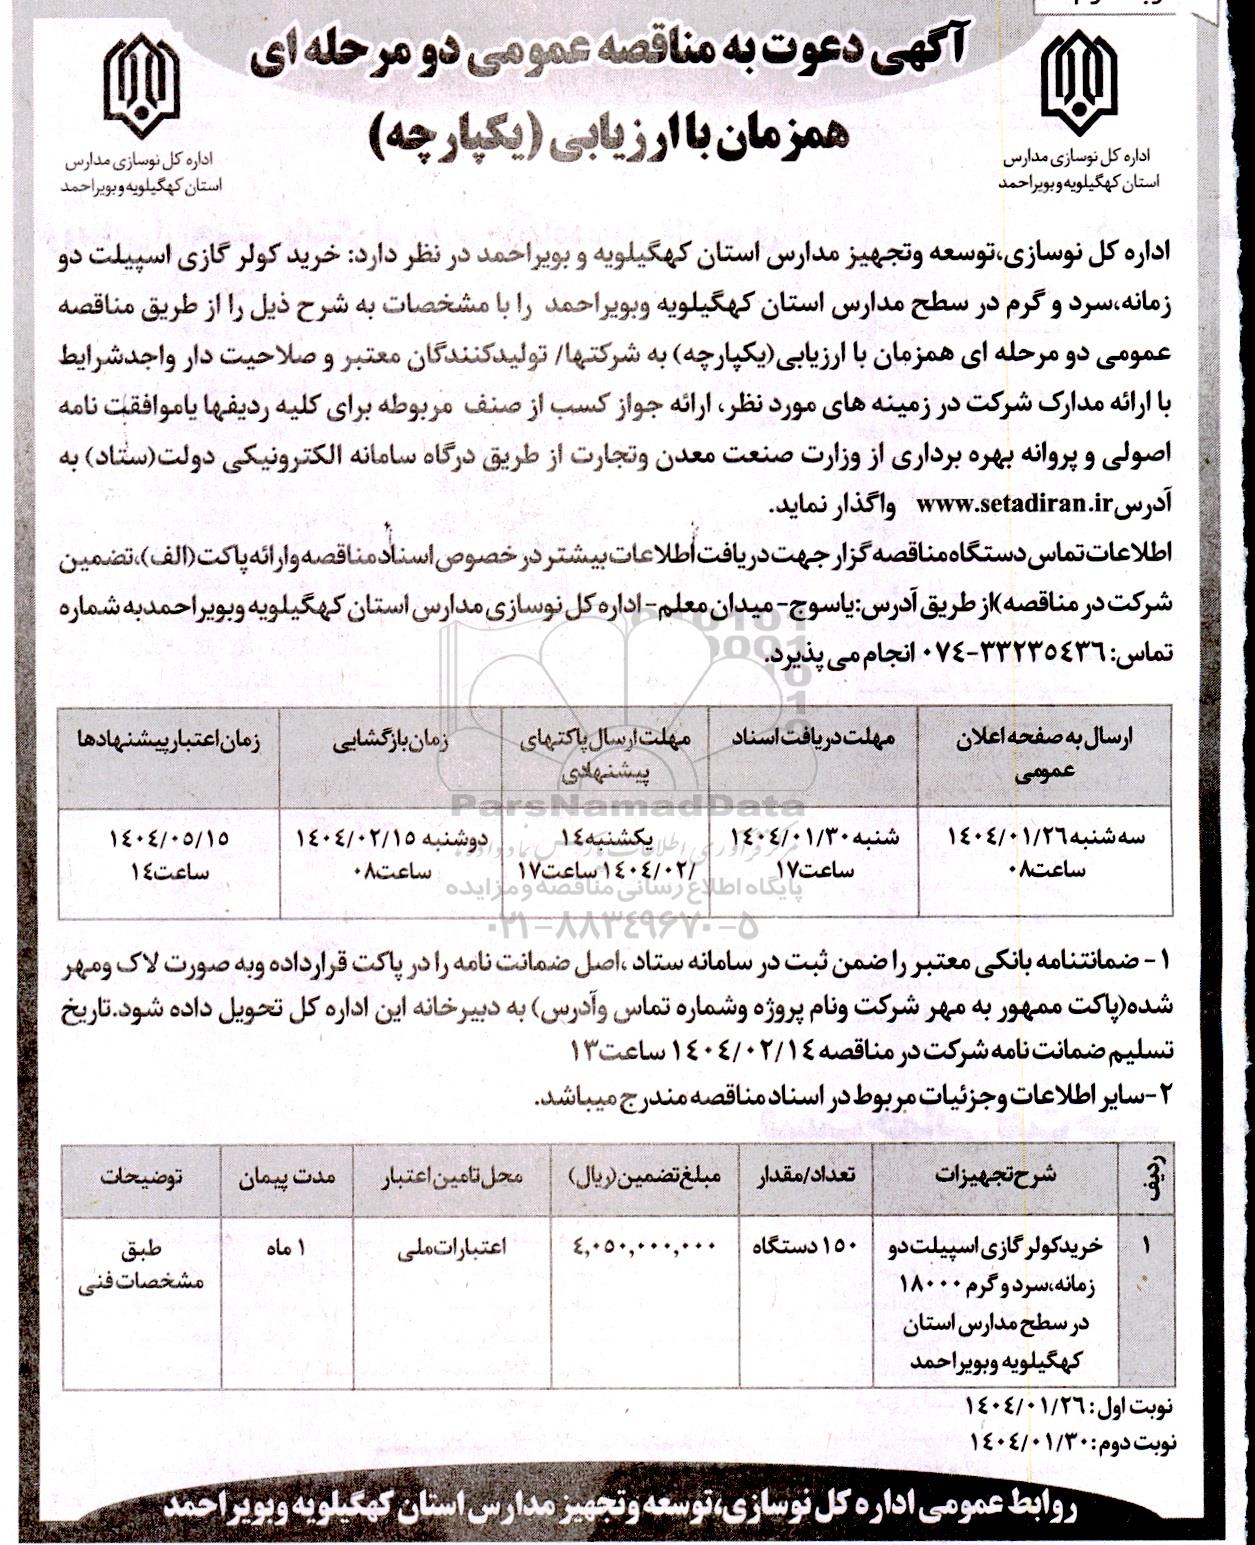 آگهی دعوت به مناقصه عمومی دو مرحله ای
همزمان با ارزیابی (یکپارچه)
اداره کل نوسازی مدارس
استان کهگیلویه و بویراحمد
اداره کل نوسازی مدارس
استان کهگیلویه و بویراحمد
اداره کل نوسازی،توسعه وتجهیز مدارس استان کهگیلویه و بویراحمد در نظر دارد: خرید کولر گازی اسپیلت دو
زمانه،سرد و گرم در سطح مدارس استان کهگیلویه وبویراحمد را با مشخصات به شرح ذیل را از طریق مناقصه
عمومی دو مرحله ای همزمان با ارزیابی(یکپارچه) به شرکتها/ تولیدکنندگان معتبر و صلاحیت دار واجدشرایط
با ارائه مدارک شرکت در زمینه های مورد نظر، ارائه جواز کسب از صنف مربوطه برای کلیه ردیفها یاموافقت نامه
اصولی و پروانه بهره برداری از وزارت صنعت معدن وتجارت از طریق درگاه سامانه الکترونیکی دولت(ستاد) به
آدرس www.setadiran.ir واگذار نماید.
اطلاعات تماس دستگاه مناقصه گزار جهت دریافت اطلاعات بیشتر در خصوص اسناد مناقصه وارائه پاکت(الف)،تضمین
شرکت در مناقصه)از طریق آدرس:یاسوج- میدان معلم- اداره کل نوسازی مدارس استان کهگیلویه وبویراحمدبه شماره
تماس: ۳۳۲۳۵۴۳۶-۰۷۴ انجام می پذیرد.
ارسال به صفحه اعلان عمومی | مهلت دریافت اسناد | مهلت ارسال پاکتهای پیشنهادی | زمان بازگشایی | زمان اعتبار پیشنهادها
سه شنبه ۱۴۰۴/۰۱/۲۶ ساعت۰۸ | شنبه ۱۴۰۴/۰۱/۳۰ ساعت۱۷ | یکشنبه۱۴ /۱۴۰۴/۰۲ ساعت۱۷ | دوشنبه ۱۴۰۴/۰۲/۱۵ ساعت۰۸ | ۱۴۰۴/۰۵/۱۵ ساعت۱۴
ParsNamadData
پایگاه اطلاع رسانی مناقصه و مزایده
۰۲۱-۸۸۳۴۹۶۷۰-۵
۱- ضمانتنامه بانکی معتبر را ضمن ثبت در سامانه ستاد ،اصل ضمانت نامه را در پاکت قرارداده وبه صورت لاک ومهر
شده(پاکت ممهور به مهر شرکت ونام پروژه وشماره تماس وآدرس) به دبیرخانه این اداره کل تحویل داده شود.تاریخ
تسلیم ضمانت نامه شرکت در مناقصه ۱۴۰۴/۰۲/۱۴ ساعت۱۳
۲-سایر اطلاعات وجزئیات مربوط در اسناد مناقصه مندرج میباشد.
ردیف | شرح تجهیزات | تعداد/مقدار | مبلغ تضمین(ریال) | محل تامین اعتبار | مدت پیمان | توضیحات
۱ | خریدکولر گازی اسپیلت دو | ۱۵۰ دستگاه | ۴,۰۵۰,۰۰۰,۰۰۰ | اعتبارات ملی | ۱ ماه | طبق مشخصات فنی
زمانه،سرد و گرم ۱۸۰۰۰
در سطح مدارس استان
کهگیلویه وبویراحمد
نوبت اول: ۱۴۰۴/۰۱/۲۶
نوبت دوم: ۱۴۰۴/۰۱/۳۰
روابط عمومی اداره کل نوسازی،توسعه وتجهیز مدارس استان کهگیلویه وبویراحمد